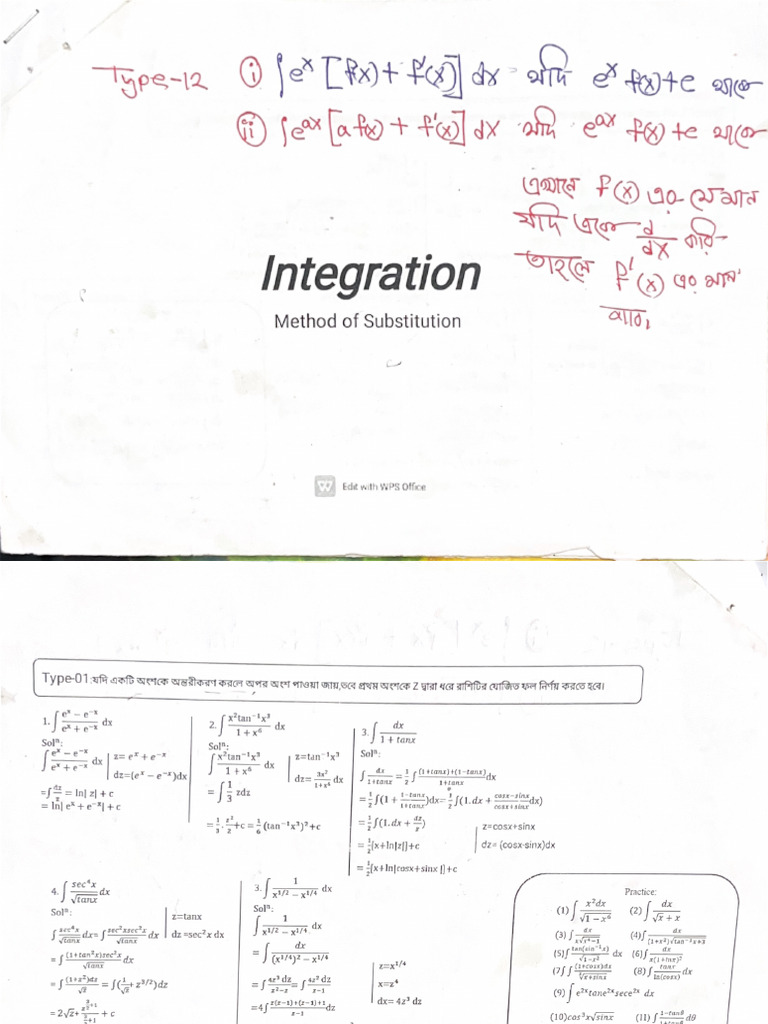 Type-12 ⓘ ∫e^x [f(x) + f′(x)] dx যদি e^x f(x)+c থাকে
ⓘⓘ ∫e^{ax} [a f(x) + f′(x)] dx যদি e^{ax} f(x)+c থাকে
এখানে f(x) এর যে মান
যদি একে d/dx করি
তাহলে f′(x) এর মান
Integration
Method of Substitution
Edit with WPS Office
Type-01:যদি একটি অংশকে অন্তরীকরণ করলে অপর অংশ পাওয়া জায়,তবে প্রথম অংশকে Z দ্বারা ধরে রাশিটির যোজিত ফল নির্ণয় করতে হবে।
1. ∫ (e^x − e^{−x})/(e^x + e^{−x}) dx
Solⁿ:
∫ (e^x − e^{−x})/(e^x + e^{−x}) dx | z= e^x + e^{−x}
dz=(e^x − e^{−x})dx
=∫ dz/z = ln| z| + c
= ln| e^x + e^{−x}| + c
2. ∫ (x²tan⁻¹x³)/(1 + x⁶) dx
Solⁿ:
∫ (x²tan⁻¹x³)/(1 + x⁶) dx | z=tan⁻¹x³
dz= 3x²/(1+x⁶) dx
= ∫ 1/3 zdz
= 1/3 · z²/2 +c = 1/6 (tan⁻¹x³)²+c
3. ∫ dx/(1 + tanx)
Solⁿ:
∫ dx/(1+tanx) = 1/2 ∫ ((1+tanx)+(1−tanx))/(1+tanx) dx
= 1/2 ∫(1 + (1−tanx)/(1+tanx))dx= 1/2 ∫(1.dx + (cosx−sinx)/(cosx+sinx) dx)
= 1/2 ∫(1.dx + dz/z) | z=cosx+sinx
= 1/2 [x+ln|z|]+c | dz= (cosx-sinx)dx
= 1/2 [x+ln|cosx+sinx |]+c
4. ∫ sec⁴x/√tanx dx
Solⁿ:
∫ sec⁴x/√tanx dx= ∫ sec²xsec²x/√tanx dx | z=tanx
dz =sec²x dx
= ∫ (1+tan²x)sec²x/√tanx dx
= ∫ (1+z²)dz/√z = ∫(1/√z + z^{3/2})dz
= 2√z+ z^{3/2+1}/(3/2+1) + c
3. ∫ 1/(x^{1/2} − x^{1/4}) dx
Solⁿ:
∫ 1/(x^{1/2} − x^{1/4}) dx
= ∫ dx/((x^{1/4})² − x^{1/4})
= ∫ 4z³ dz/(z²−z) = ∫ 4z² dz/(z−1) | z=x^{1/4}
x=z⁴
dx= 4z³ dz
= 4∫ (z(z−1)+(z−1)+1)/(z−1) dz
Practice:
(1) ∫ x²dx/√(1 − x⁶) (2) ∫ dx/(√x + x)
(3) ∫ dx/(x√(x⁴−1)) (4) ∫ dx/((1+x²)√(tan⁻¹x+3))
(5)∫ tan(sin⁻¹x)/√(1−x²) dx (6)∫ dx/(x(1+lnx)²)
(7)∫ (1+cosx)dx/∛(x+sinx) (8) ∫ tanx/ln(cosx) dx
(9) ∫ e^{2x}tane^{2x}sece^{2x} dx
(10)cos³x√sinx (11) ∫ (1−tanθ)/(1+tanθ) dθ